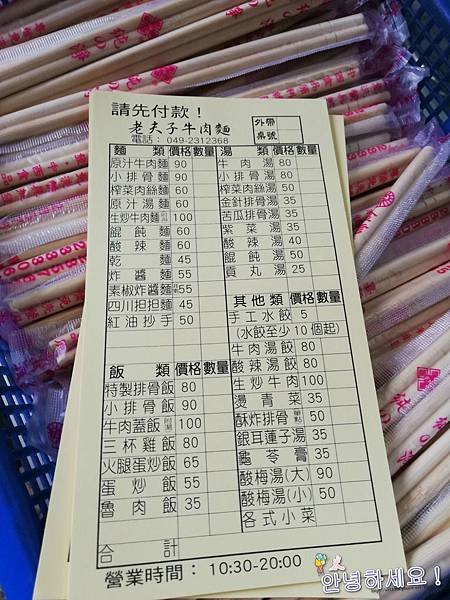 請先付款！
老夫子牛肉麵
電話：049-2312368
外帶
桌號
麵類 價格 數量
原汁牛肉麵 90
小排骨麵 90
榨菜肉絲麵 60
原汁湯麵 60
生炒牛肉麵 100
餛飩麵 60
酸辣麵 60
乾麵 45
炸醬麵 55
素椒炸醬麵 55
四川担担麵 45
紅油抄手 50
湯類 價格 數量
牛肉湯 80
小排骨湯 80
榨菜肉絲湯 50
金針排骨湯 35
苦瓜排骨湯 35
紫菜湯 35
酸辣湯 40
餛飩湯 50
貢丸湯 25
飯類 價格 數量
特製排骨飯 80
小排骨飯 90
牛肉蓋飯 100
三杯雞飯 80
火腿蛋炒飯 65
蛋炒飯 55
魯肉飯 35
合計
其他類 價格 數量
手工水餃 5
(水餃至少10個起)
牛肉湯餃 80
酸辣湯餃 80
生炒牛肉 100
燙青菜 35
酥炸排骨 單點 50
銀耳蓮子湯 35
龜苓膏 35
酸梅湯(大) 90
酸梅湯(小) 50
各式小菜
營業時間：10:30-20:00
안녕하세요！